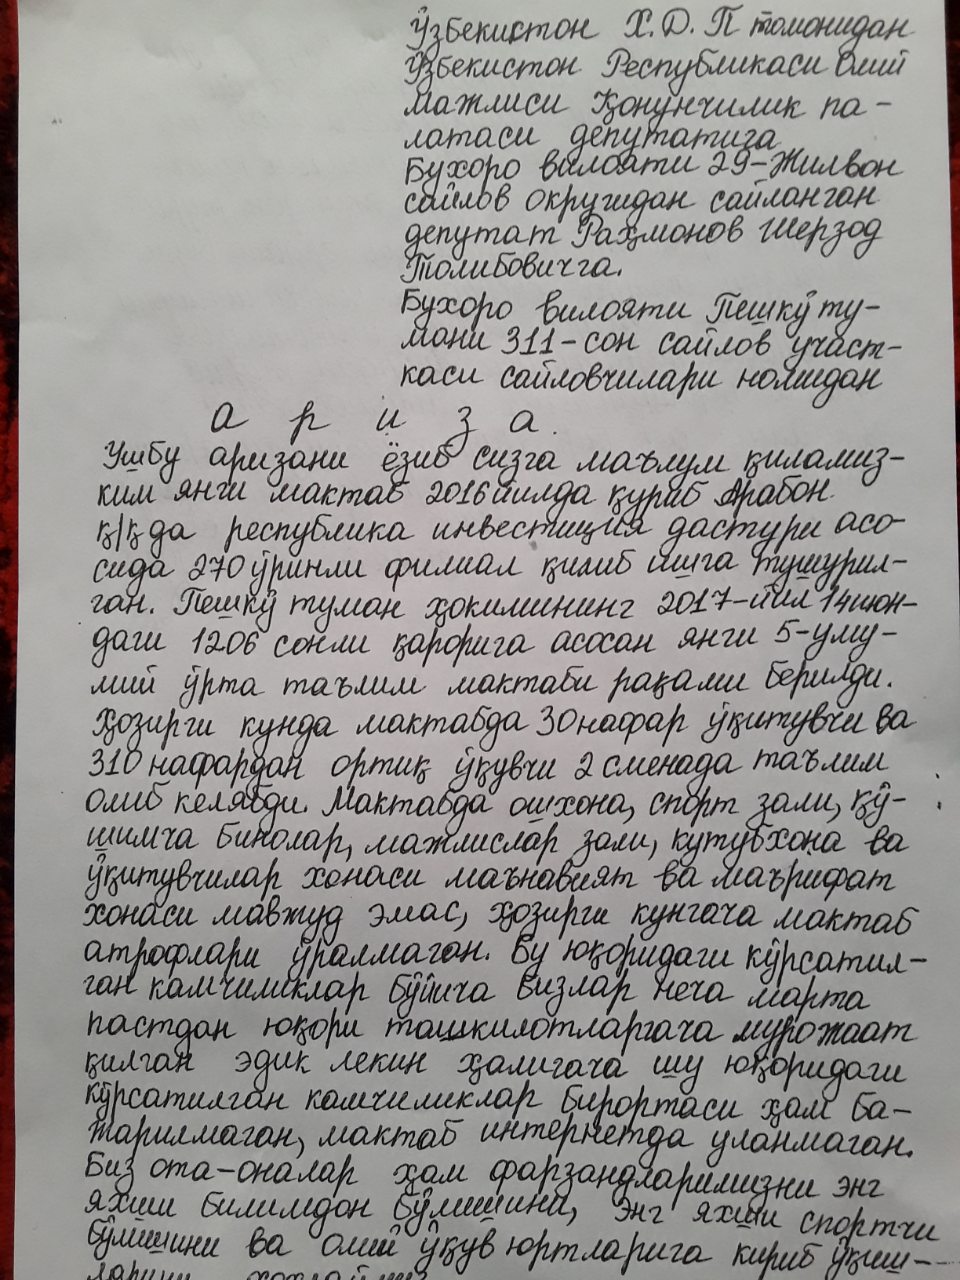 Ўзбекистон Х.Д.П томонидан
Ўзбекистон Республикаси Олий
Мажлиси Қонунчилик па-
латаси депутатига
Бухоро вилояти 29-Жилвон
сайлов округидан сайланган
депутат Раҳмонов Шерзод
Толибовичга.
Бухоро вилояти Пешкў ту-
мани 311-сон сайлов участ-
каси сайловчилари номидан
а р и з а.
Ушбу аризани ёзиб сизга маълум қиламиз-
ким янги мактаб 2016 йилда қуриб Арабон
қ/қ да республика инвестиция дастури асо-
сида 270 ўринли филиал қилиб ишга тушурил-
ган. Пешкў туман ҳокимининг 2017-йил 14 июн-
даги 1206 сонли қарорига асосан янги 5-уму-
мий ўрта таълим мактаби рақами берилди.
Ҳозирги кунда мактабда 30 нафар ўқитувчи ва
310 нафардан ортиқ ўқувчи 2 сменада таълим
олиб келябди. Мактабда ошхона, спорт зали, қў-
шимча бинолар, мажлислар зали, кутубхона ва
ўқитувчилар хонаси маънавият ва маърифат
хонаси мавжуд эмас, ҳозирги кунгача мактаб
атрофлари ўралмаган. Бу юқоридаги кўрсатил-
ган камчиликлар бўйича бизлар неча марта
пастдан юқори ташкилотларгача мурожаат
қилган эдик лекин ҳалигача шу юқоридаги
кўрсатилган камчиликлар бирортаси ҳам ба-
жарилмаган, мактаб интернетда уланмаган.
Биз ота-оналар ҳам фарзандларимизни энг
яхши билимдон бўлишини, энг яхши спортчи
бўлишини ва олий ўқув юртларига кириб ўқиш-